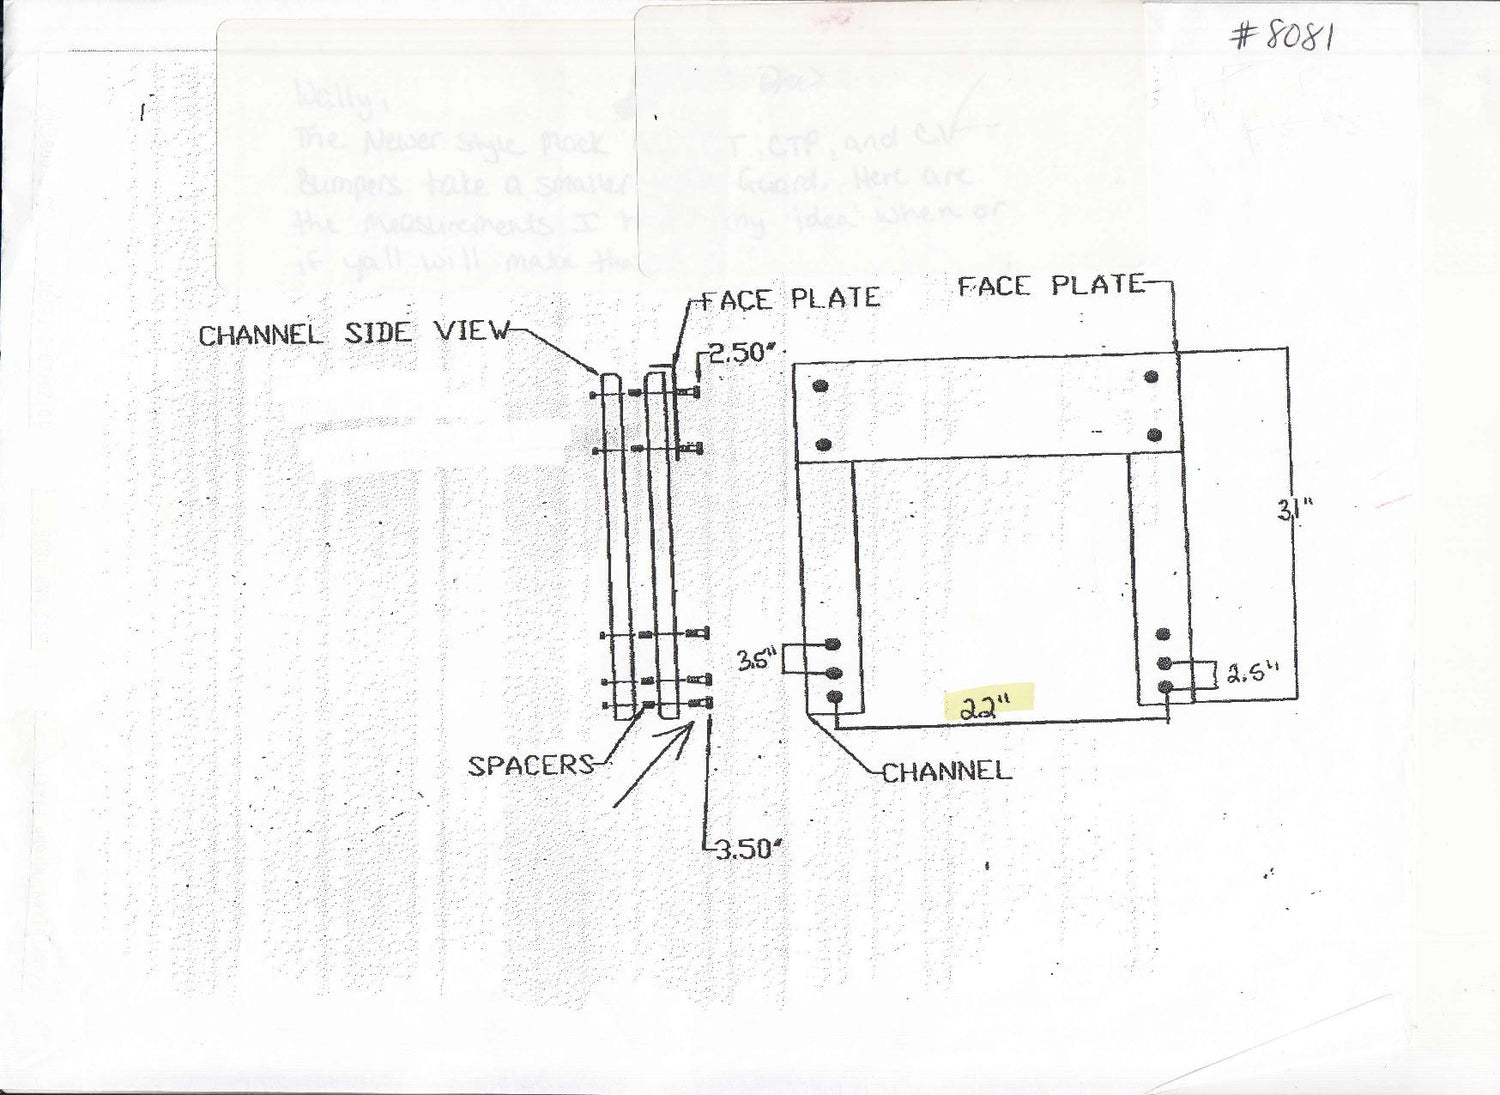 #8081
Wally,
The Newer Style Mack T, CTP, and CV
Bumpers take a smaller Guard. Here are
the measurements I my idea when or
if yall will make
FACE PLATE
FACE PLATE
CHANNEL SIDE VIEW
2.50"
31"
3.5"
2.5"
22"
SPACERS
CHANNEL
3.50"